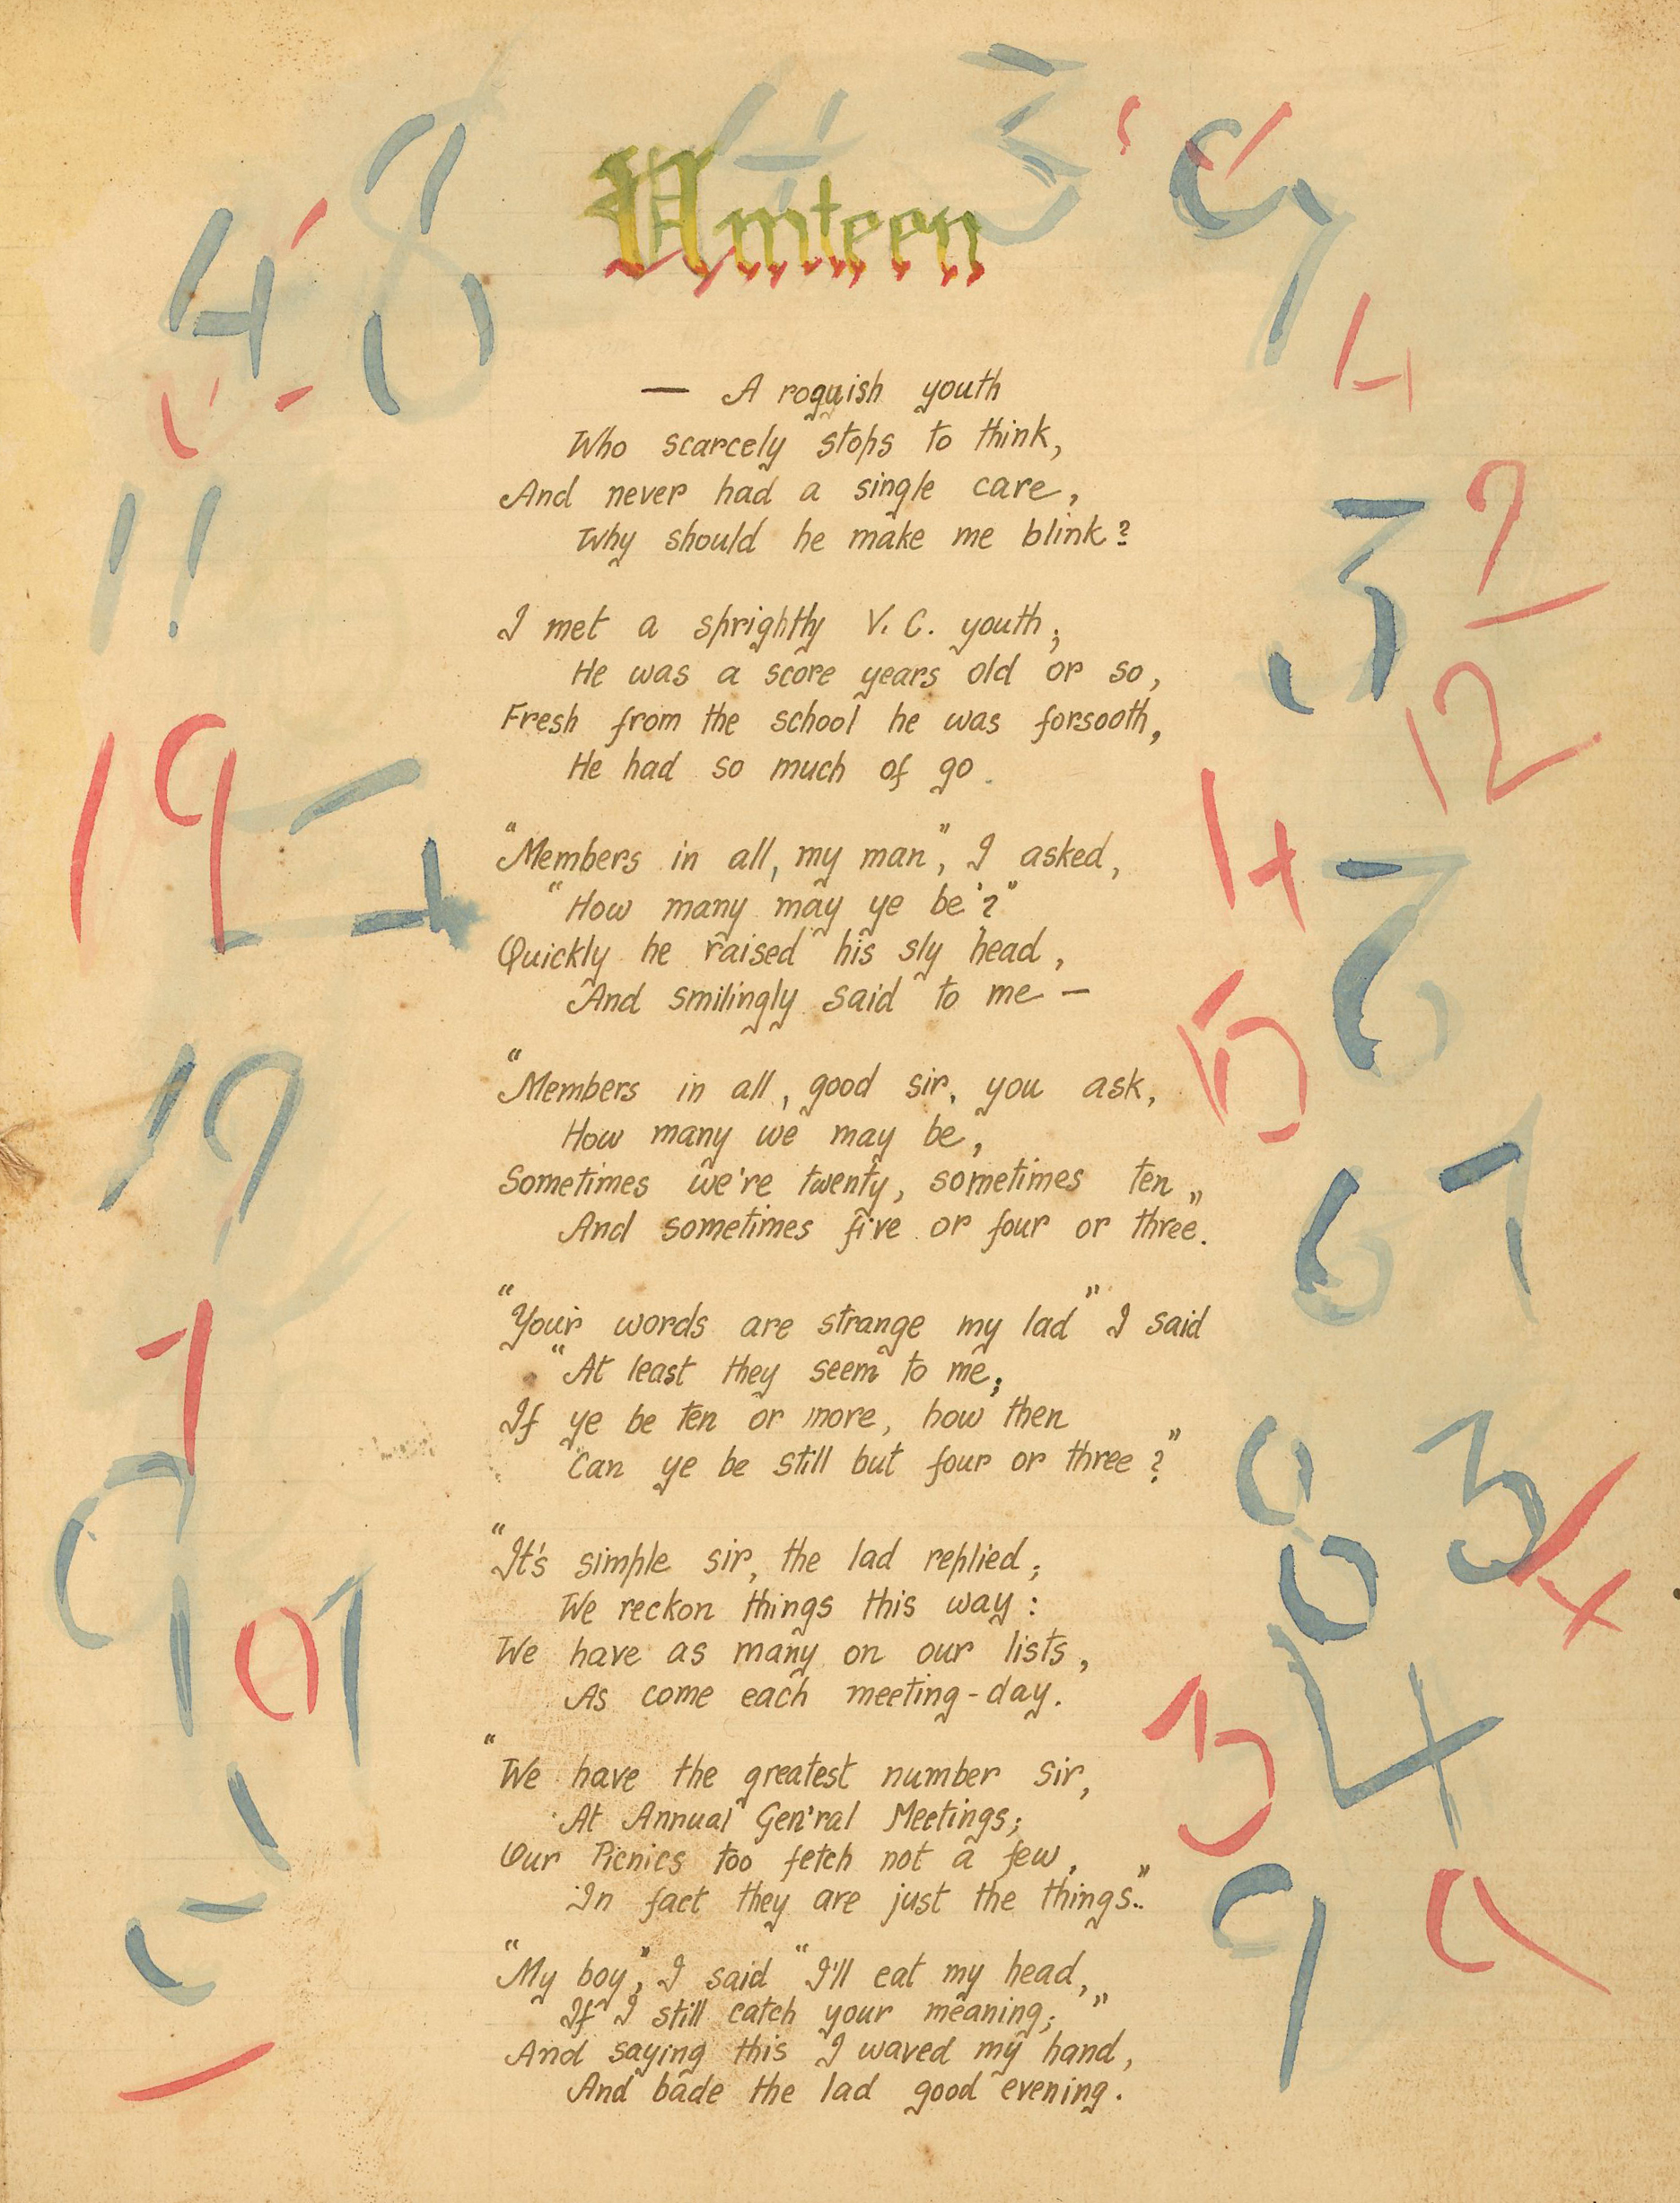 Umteen
— A roguish youth
Who scarcely stops to think,
And never had a single care,
Why should he make me blink?
I met a sprightly V. C. youth;
He was a score years old or so,
Fresh from the school he was forsooth,
He had so much of go.
"Members in all, my man", I asked,
"How many may ye be?"
Quickly he raised his sly head,
And smilingly said to me —
"Members in all, good sir, you ask,
How many we may be,
Sometimes we're twenty, sometimes ten
And sometimes five or four or three."
"Your words are strange my lad" I said
"At least they seem to me;
If ye be ten or more, how then
Can ye be still but four or three?"
"It's simple sir, the lad replied;
We reckon things this way:
We have as many on our lists,
As come each meeting-day.
"We have the greatest number sir,
At Annual Gen'ral Meetings;
Our Picnics too fetch not a few,
In fact they are just the things."
"My boy", I said "I'll eat my head,
If I still catch your meaning;"
And saying this I waved my hand,
And bade the lad good evening.